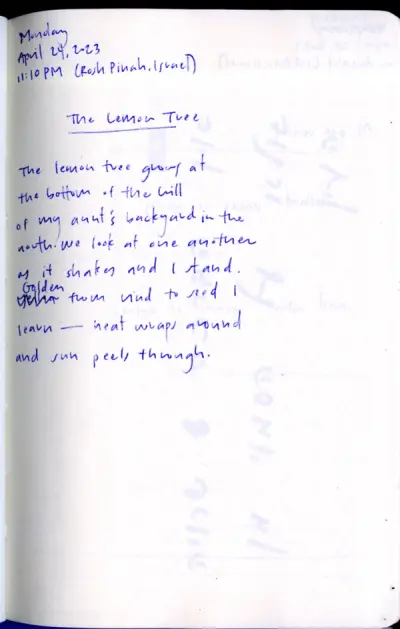 Monday
April 24, 2023
11:10 PM (Rosh Pinah, Israel)
The Lemon Tree
The lemon tree grows at
the bottom of the hill
of my aunt's backyard in the
north. We look at one another
as it shakes and I stand.
Golden
from rind to seed I
learn — heat wraps around
and sun peels through.